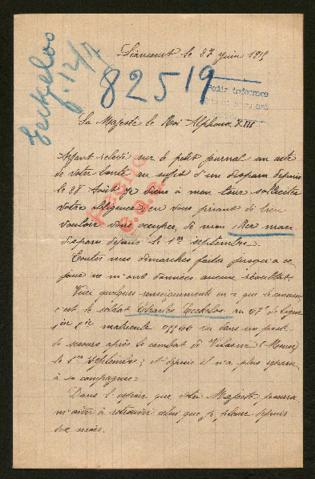 Liancourt le 27 Juin 1915
Zeckelos
82519
Sa Majesté le Roi Alphonse XIII
Ayant relaté sur le petit journal un acte
de votre bonté au sujet d'un disparu depuis
le 28 Août je viens à mon tour solliciter
votre diligence en vous priant de bien
vouloir vous occuper de mon cher mari
disparu depuis le 1er septembre.
Toutes mes démarches faites jusqu'à ce
jour ne m'ont données aucun résultat.
Voici quelques renseignements en ce que le concerne
c'est le soldat Charles au 67e de ligne
matricule dans un poste
de secours après le combat de (Meuse)
le 1er septembre; et depuis il n'a plus reparu
à sa compagnie.
Dans l'espoir que votre Majesté pourra
m'aider à retrouver celui que je pleure depuis
dix mois.